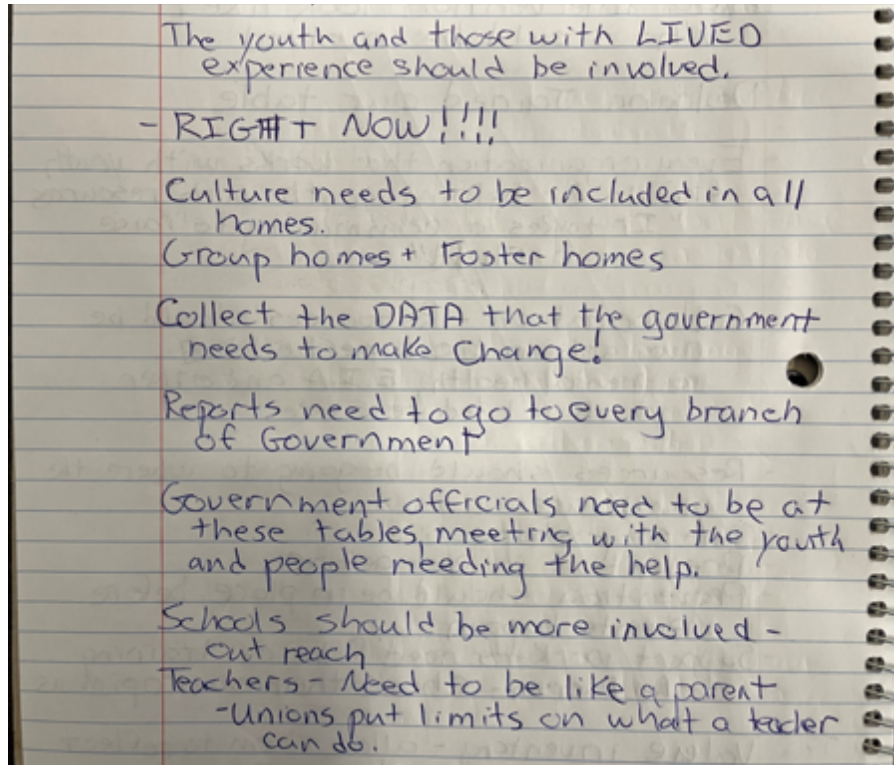 The youth and those with LIVED
experience should be involved.
- RIGHT NOW!!!!
Culture needs to be included in all
homes.
Group homes + Foster homes
Collect the DATA that the government
needs to make Change!
Reports need to go to every branch
of Government
Government officials need to be at
these tables, meeting with the youth
and people needing the help.
Schools should be more involved -
out reach
Teachers - Need to be like a parent
- Unions put limits on what a teacher
can do.